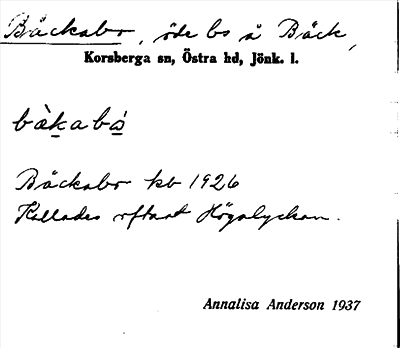 Bäckabo, öde bs å Bäck,
Korsberga sn, Östra hd, Jönk. l.
bàkabó
Bäckabo kb 1926
Kallades oftast Högalyckan.
Annalisa Anderson 1937